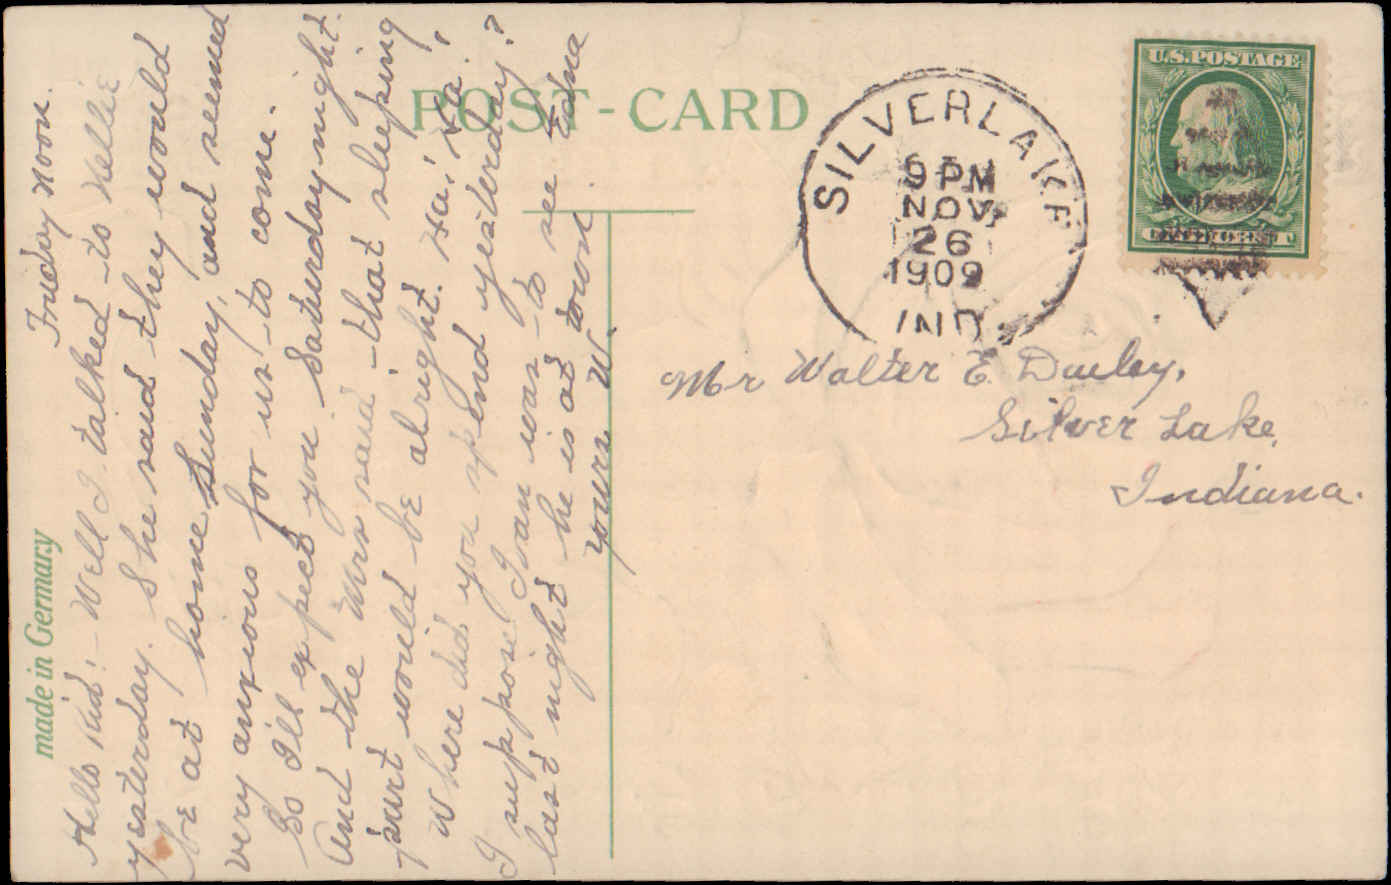 POST-CARD
U.S.POSTAGE
SILVERLAKE
9 PM
NOV
26
1909
IND.
Mr Walter E. Dailey,
Silver Lake,
Indiana.
made in Germany
Friday Noon.
Hello Kid:- Well I talked to Nellie
yesterday. She said they would
be at home Sunday, and seemed
very anxious for us to come.
So I'll expect you Saturday night.
And the Mrs said that sleeping
part would be alright. Ha, Ha!
Where did you spend yesterday?
I suppose Ivan was to see Edna
last night he is at town.
yours W.